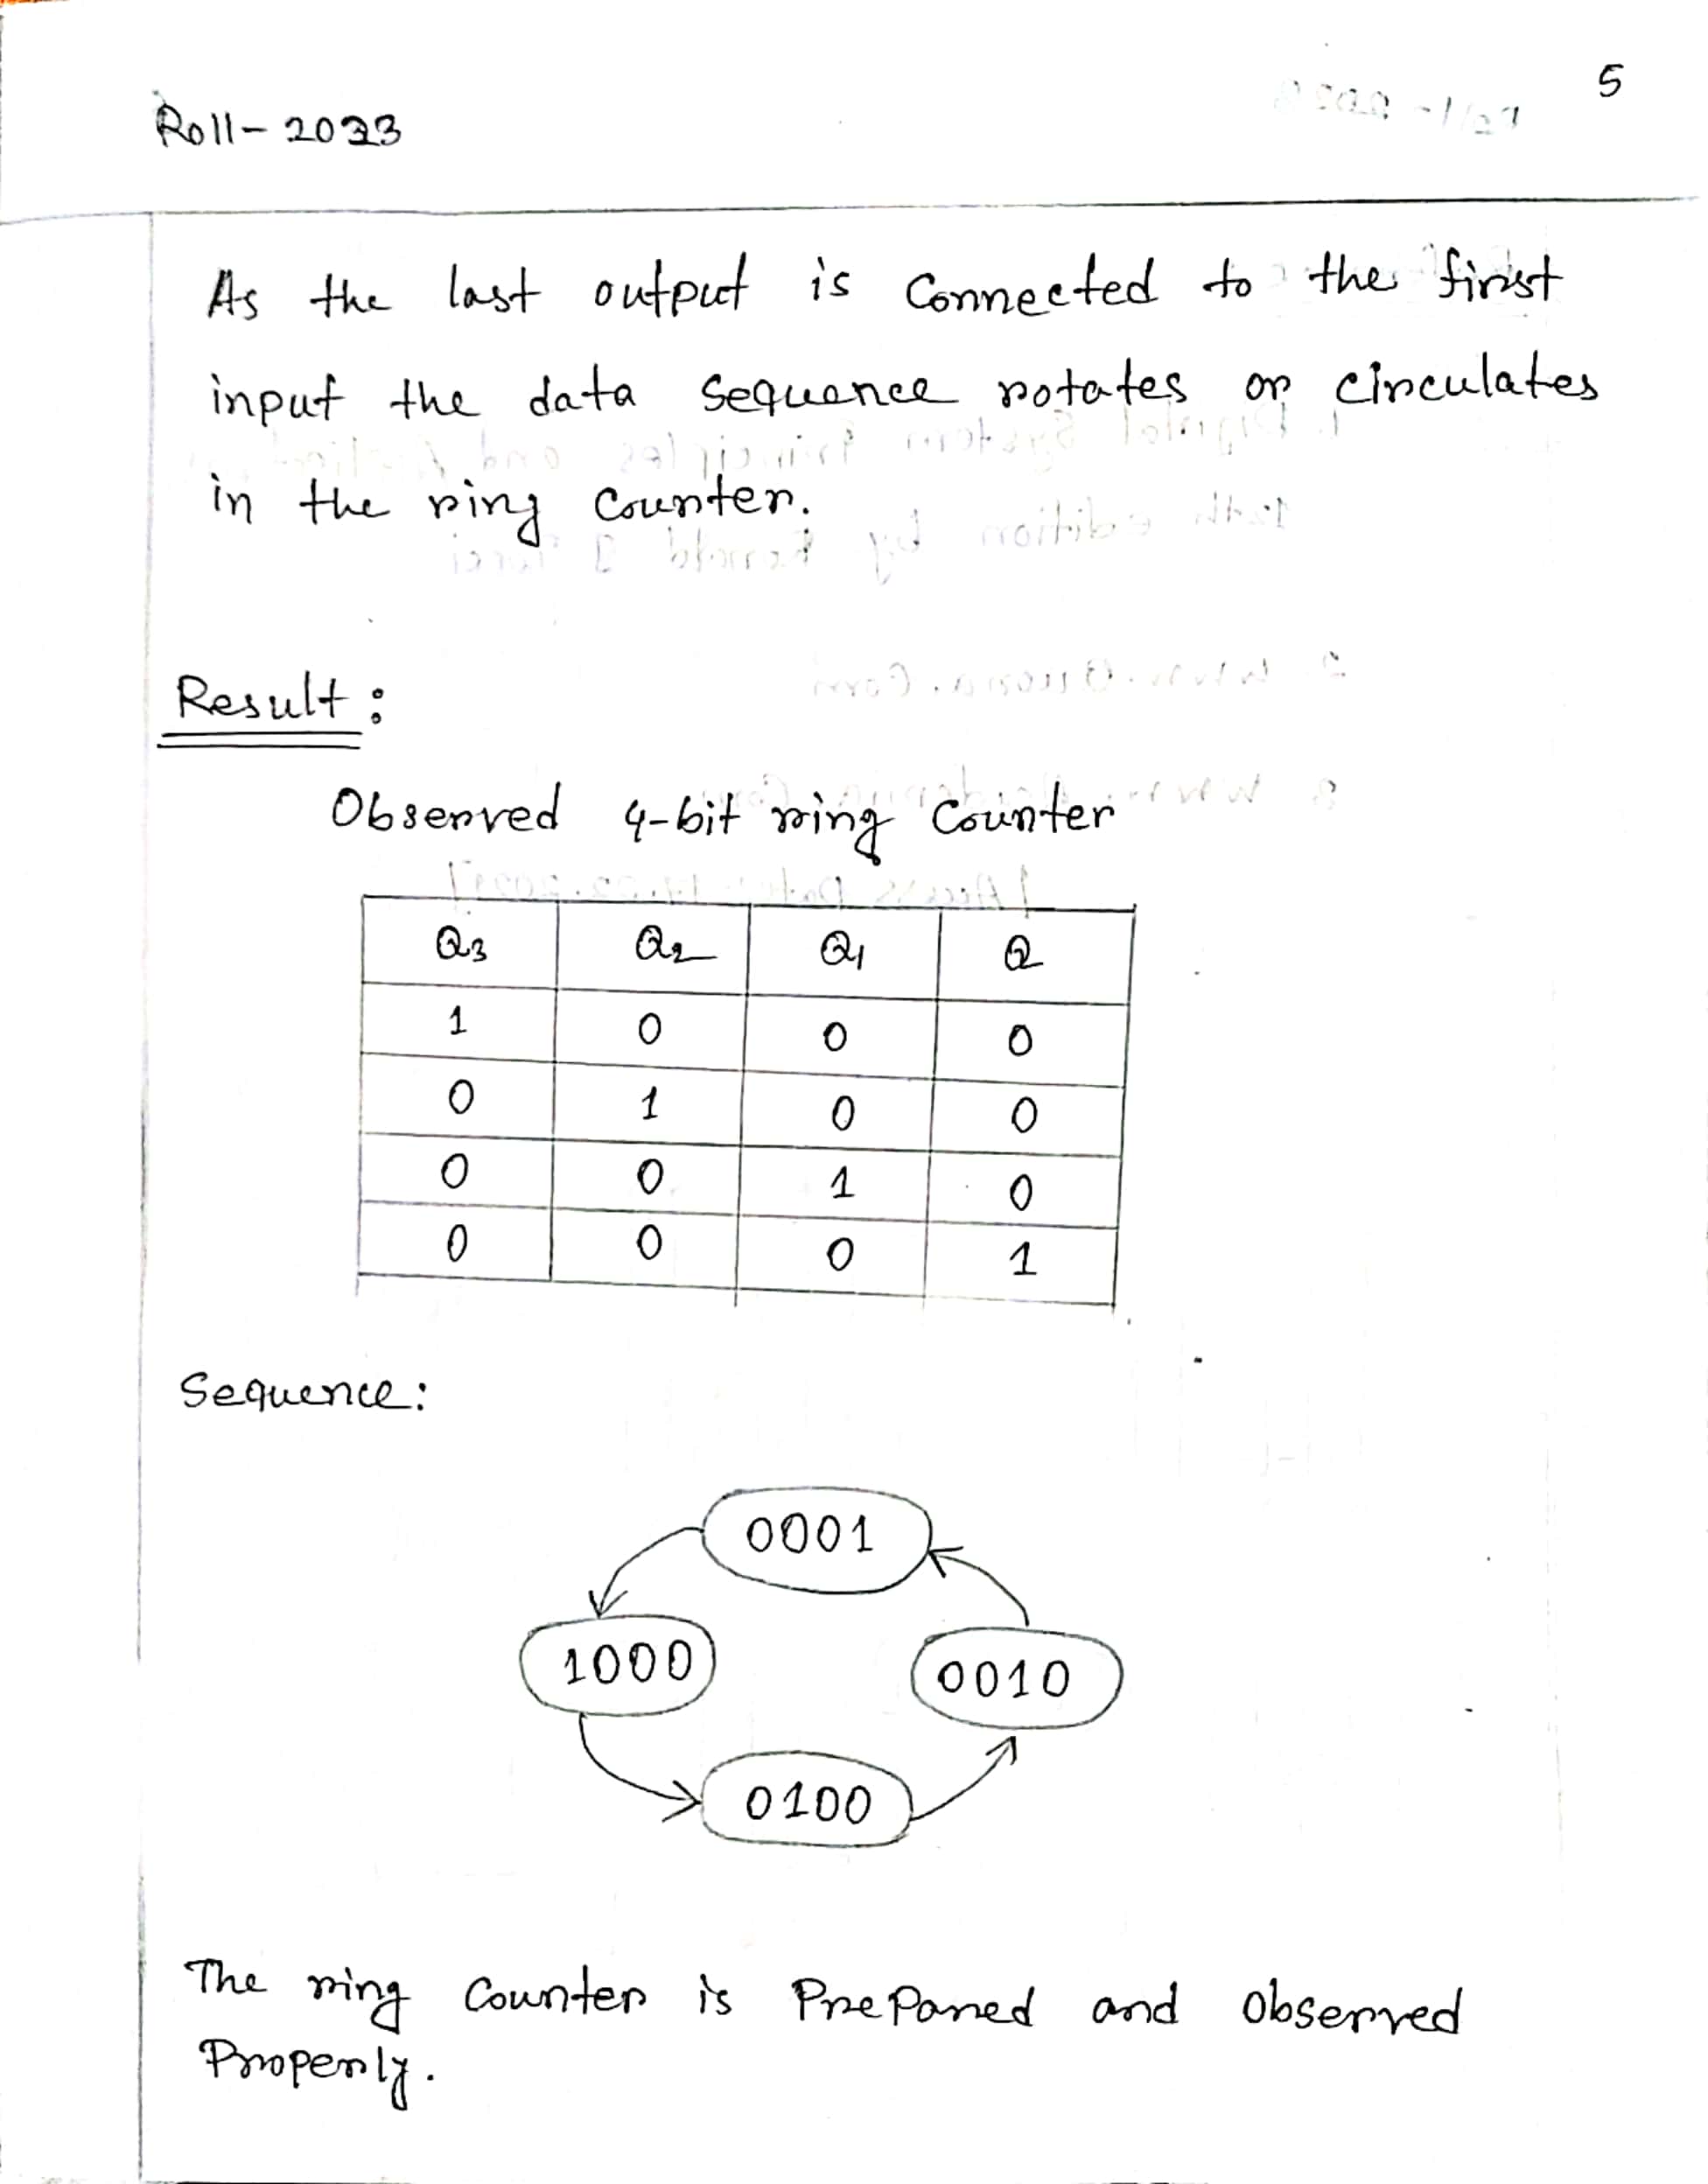 5
Roll-2033
As the last output is connected to the first
input the data sequence rotates or circulates
in the ring counter.
Result:
Observed 4-bit ring counter
Q3 Q2 Q1 Q
1 0 0 0
0 1 0 0
0 0 1 0
0 0 0 1
Sequence:
0001
1000 0010
0100
The ring counter is Prepared and observed
Properly.